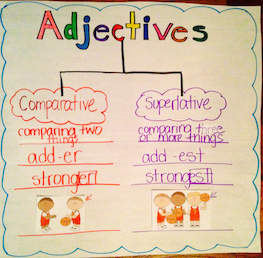 Adjectives
Comparative
comparing two
things
add-er
stronger
Superlative
comparing three
or more things
add -est
strongest